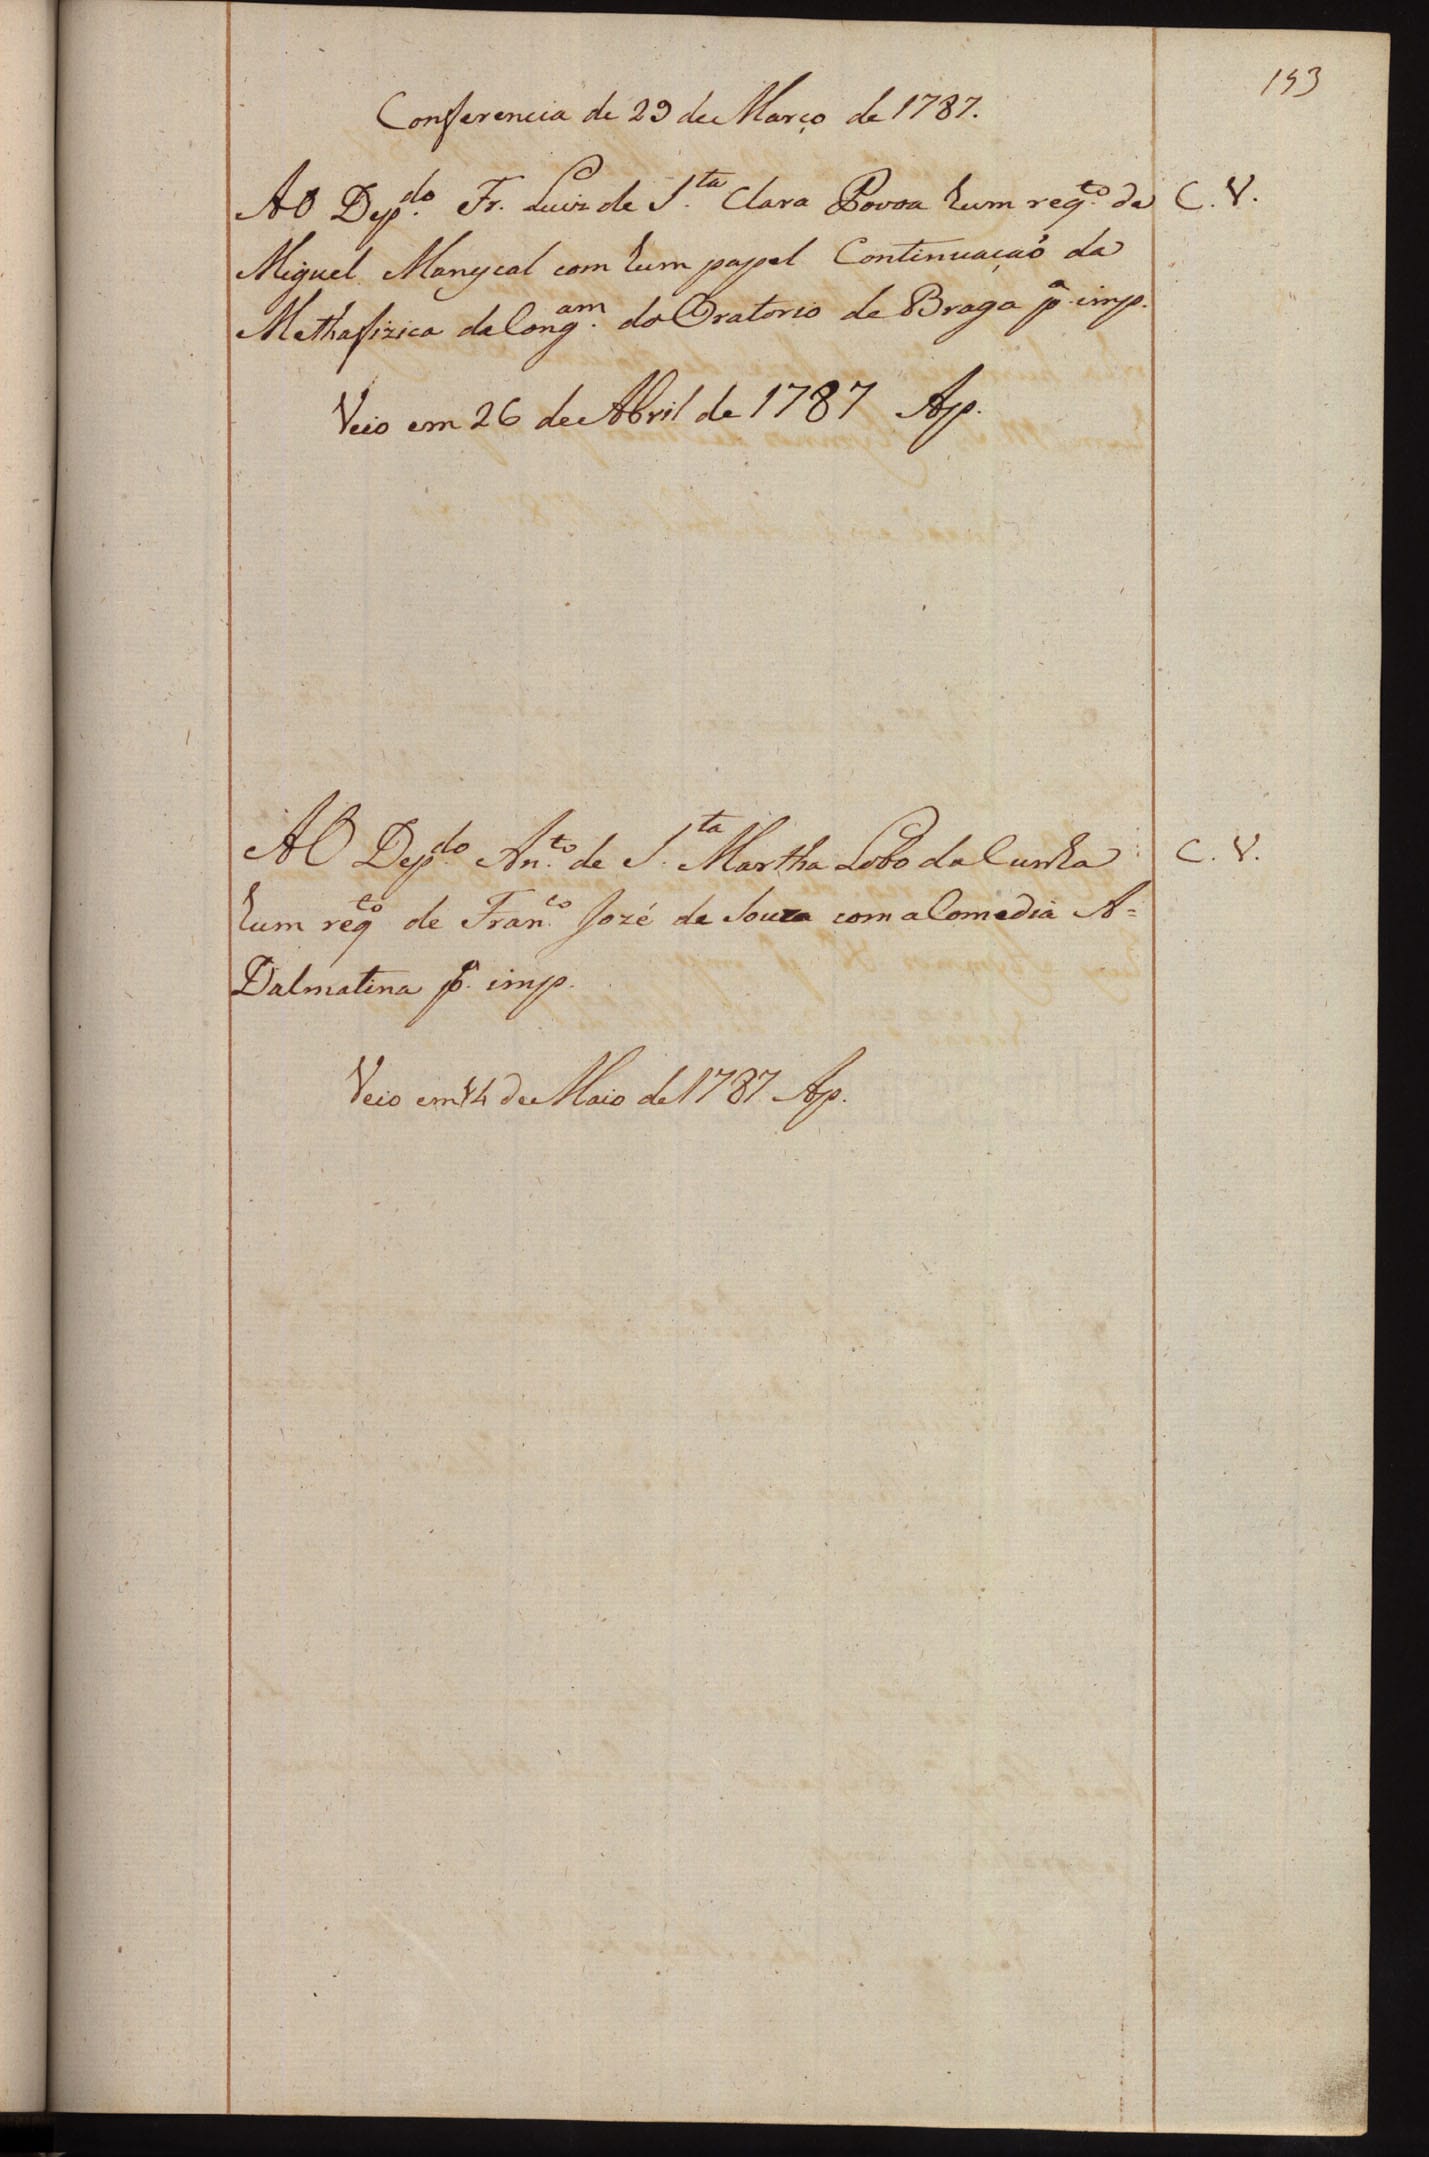 153
Conferencia de 29 de Março de 1787.
AO Dep.do Fr. Luiz de S.ta Clara Povoa hum req.to de C. V.
Miguel Manescal com hum papel Continuaçaõ da
Methafizica da Cong.am do Oratorio de Braga p.a imp.
Veio em 26 de Abril de 1787 Ap.
AO Dep.do An.to de S.ta Martha Lobo da Cunha C. V.
hum req.to de Fran.co Jozé de Souza com a Comedia A=
Dalmatina p.a imp.
Veio em 14 de Maio de 1787 Ap.